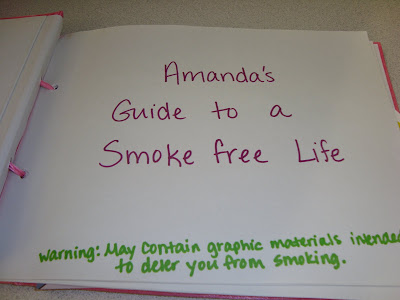 Amanda's
Guide to a
Smoke free Life
warning: May Contain graphic materials intended
to deter you from smoking.